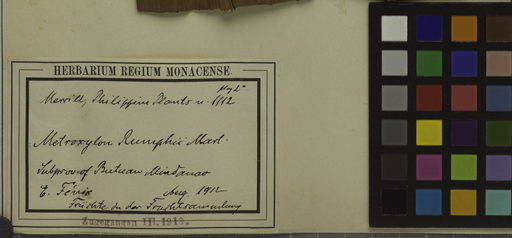 HERBARIUM REGIUM MONACENSE.
Merrill, Philippine Plants n. 1112
Metroxylon Rumphii Mart.
Subprov. of Butuan Mindanao
E. Fénix Aug 1912
Früchte in der Fruchtsammlung
Zugegangen III. 1913.